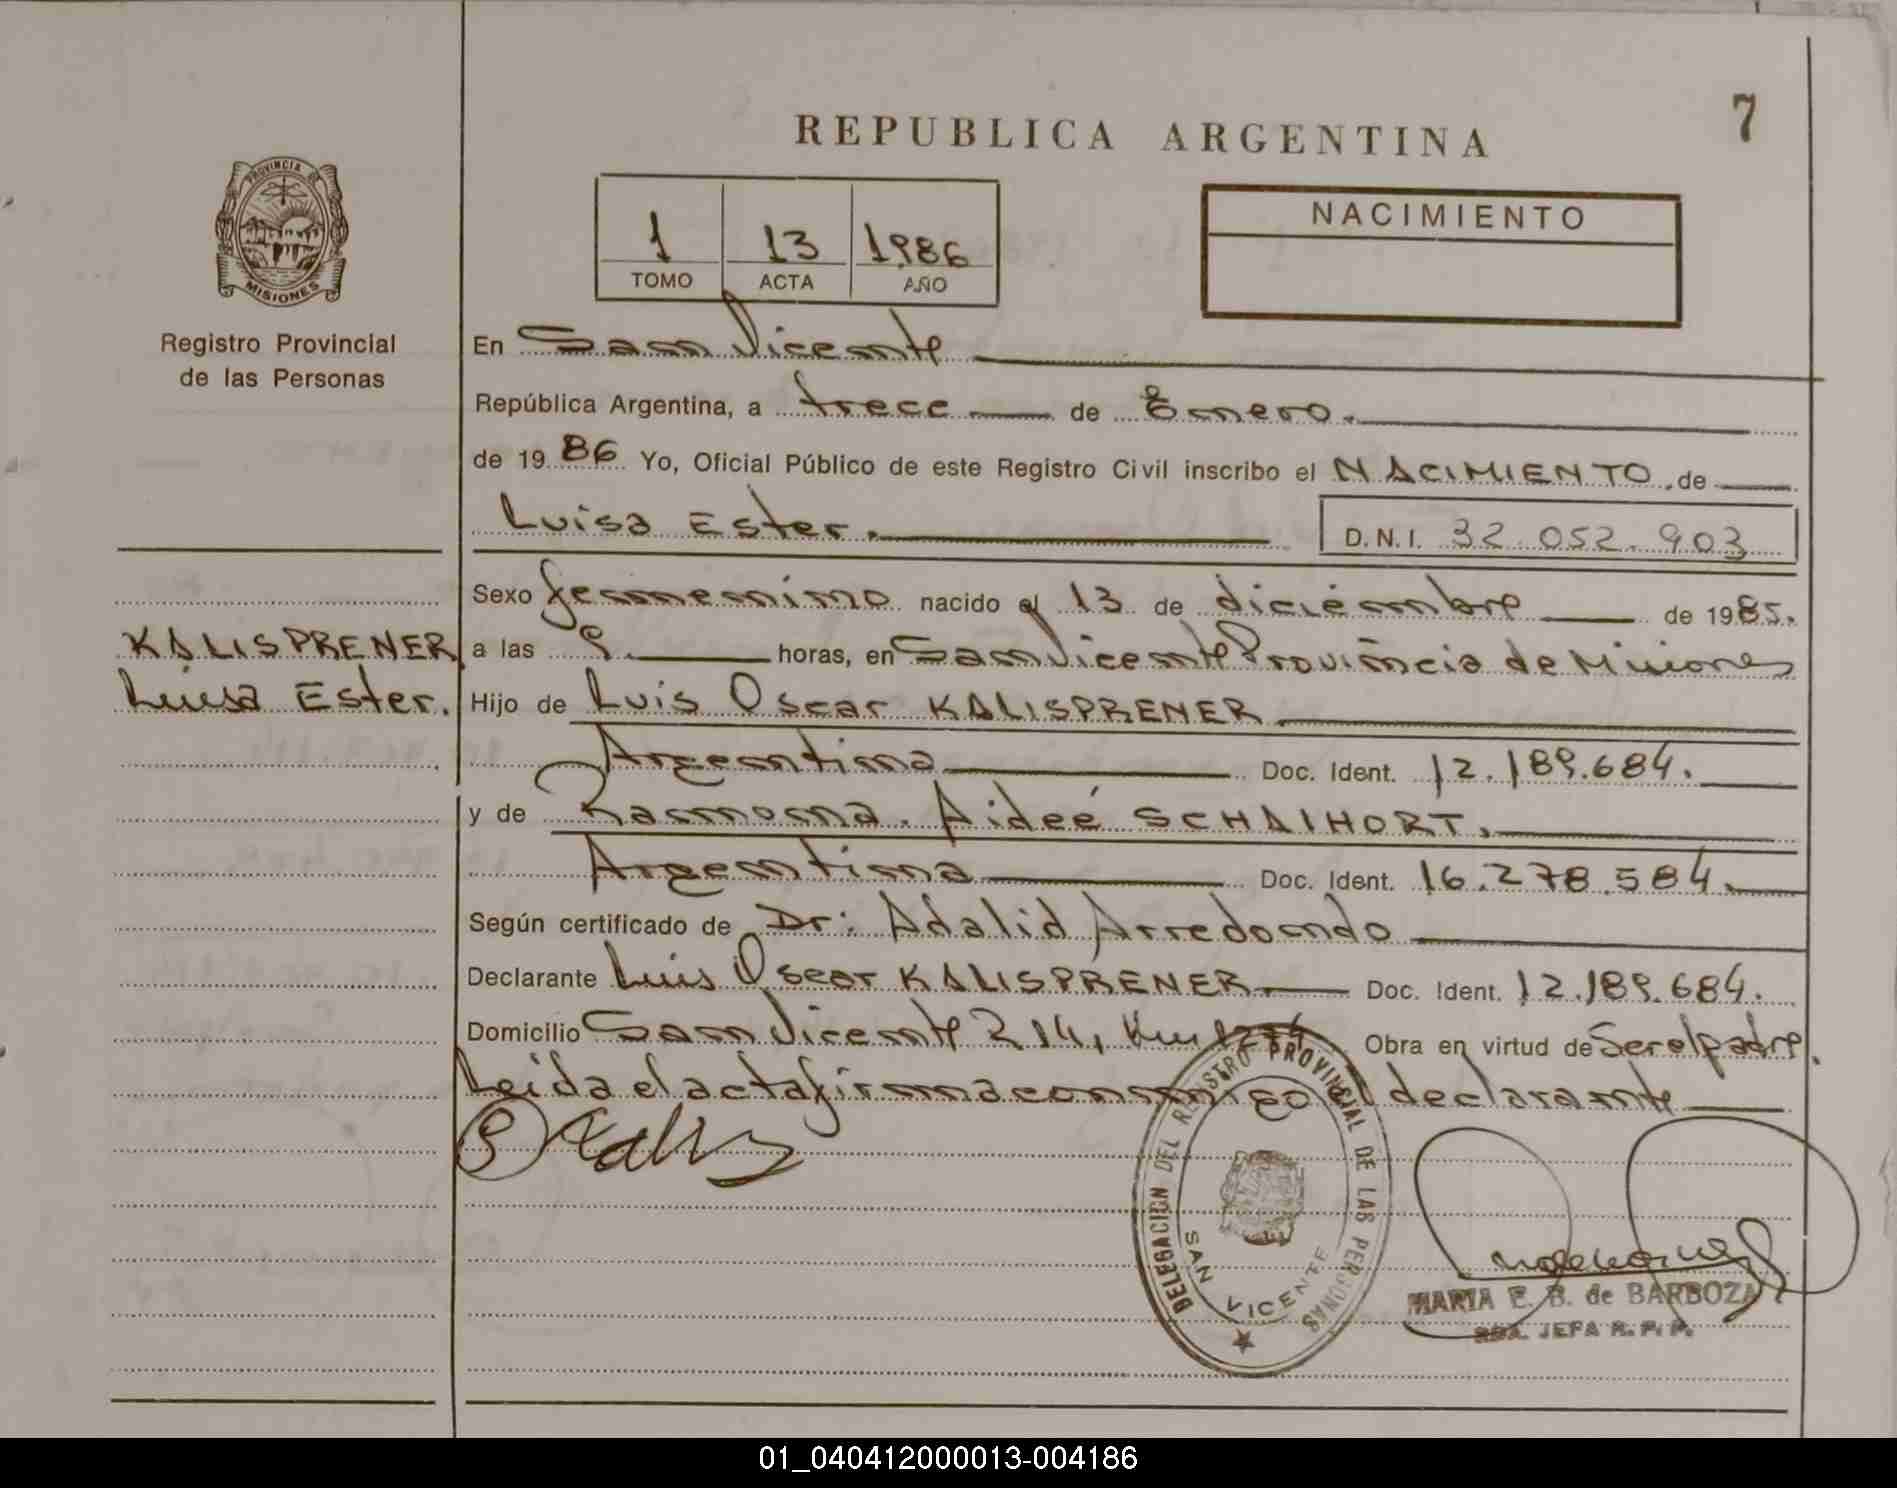 7
REPUBLICA ARGENTINA
PROVINCIA DE
MISIONES
Registro Provincial
de las Personas
1 13 1986
TOMO ACTA AÑO
NACIMIENTO
En San Vicente
República Argentina, a trece de Enero.
de 1986 Yo, Oficial Público de este Registro Civil inscribo el NACIMIENTO de
Luisa Ester.
D.N.I. 32.052.903
KALISPRENER
Luisa Ester.
Sexo femenino nacido el 13 de diciembre de 1985.
a las 9 horas, en San Vicente Provincia de Misiones
Hijo de Luis Oscar KALISPRENER
Argentina Doc. Ident. 12.189.684.
y de Ramona Aideé SCHAIHORT.
Argentina Doc. Ident. 16.278.584.
Según certificado de Dr: Adalid Arredondo
Declarante Luis Oscar KALISPRENER Doc. Ident. 12.189.684.
Domicilio San Vicente 214, Km Obra en virtud de Ser el padre.
Leida el acta firma conmigo el declarante
DELEGACION DEL REGISTRO PROVINCIAL DE LAS PERSONAS
SAN VICENTE
MARIA E. B. de BARBOZA
JEFA R. P. P.
01_040412000013-004186